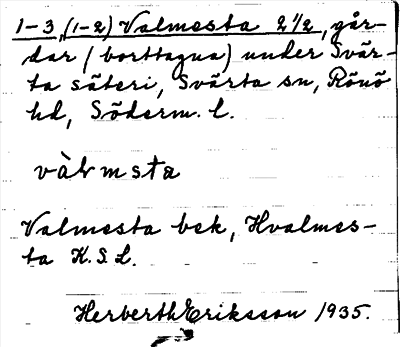 1-3, (1-2) Valmesta 2 1/2, går-
dar (borttagna) under Svär-
ta säteri, Svärta sn, Rönö
hd, Söderm. l.
vàlmsta
Valmesta bek, Hvalmes-
ta K.S.L.
Herberth Eriksson 1935.